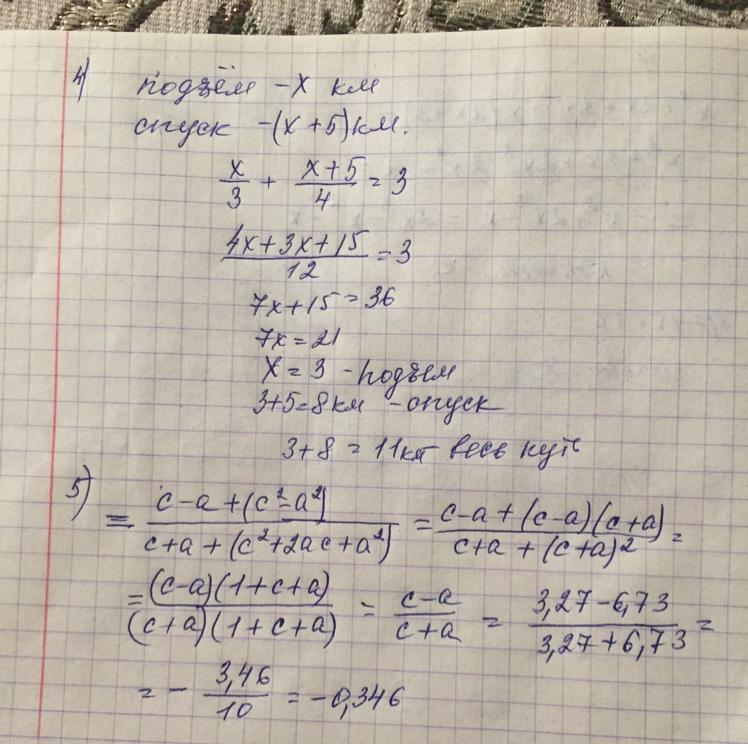 4) подъём - х км
спуск - (х + 5) км.
х/3 + (х+5)/4 = 3
(4х+3х+15)/12 = 3
7х+15 = 36
7х = 21
х = 3 - подъём
3+5=8 км - спуск
3+8 = 11км весь путь
5) = (c-a+(c²-a²))/(c+a+(c²+2ac+a²)) = (c-a+(c-a)(c+a))/(c+a+(c+a)²) =
= ((c-a)(1+c+a))/((c+a)(1+c+a)) = (c-a)/(c+a) = (3,27-6,73)/(3,27+6,73) =
= - 3,46/10 = -0,346